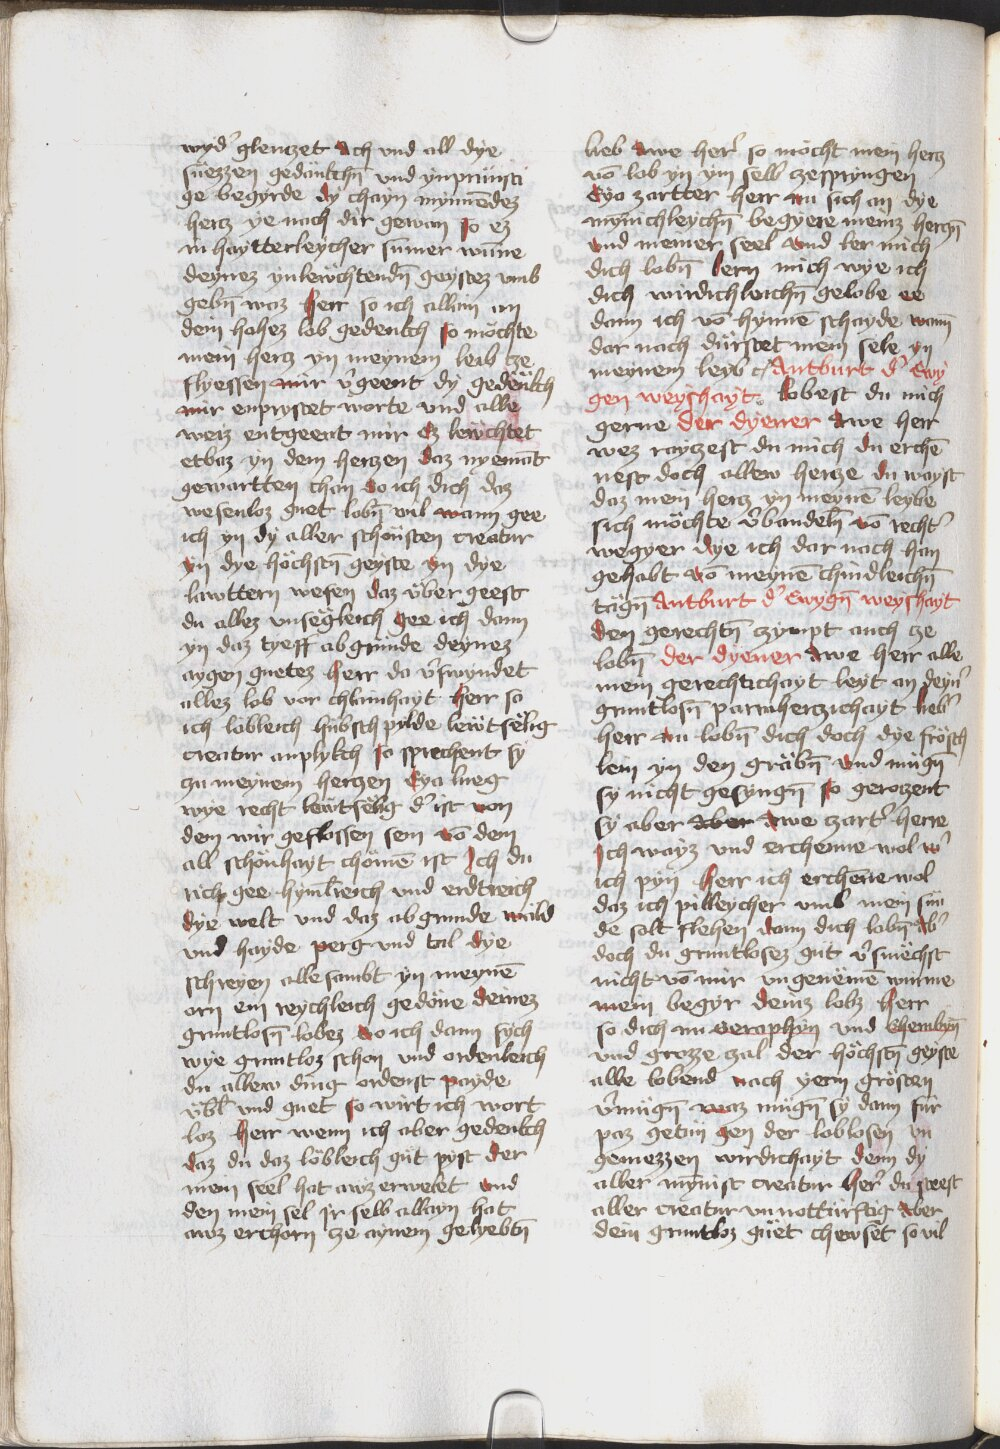 wyd' glenczet Ach vnd all dye
süezzen gedänkchñ vnd ynprünsti
ge begyrde dy chayn mynnēdez
hercz ye nach dir gewan so ez
in haytterleycher sumer wune
deynez ynlewchtendñ geystez vmb
gebñ waz herr so ich allain an
dein hohez lob gedenkch so möchte
mein hercz yn meynem leib cze
flyessen mir v'geent dy gedënkch
mir enprystet worte vnd alle
weiz entgeent mir Ez lewchtet
etbaz yn dem herczen daz nyemāt
gewartten chan So ich dich daz
wesenloz guet lobñ wil wann gee
ich yn dy aller schönsten creatur
yn dye höchstñ geyste yn dye
lawttern wesen daz über geest
du allez vnsëgleich gee ich dann
yn daz tyeff abgrunde deynez
aygen guetez herr do v'swyndet
allez lob vor chlainhayt herr so
ich löbleich hübsch pylde lewtsëlig
creatur anplykch so sprechent sy
zu meynem herczen Eya lueg
wye recht lewtsëlig d' ist von
dem wir geflossen sein vō dem
all schönhayt chömē ist Ich du
rich gee hymlreich vnd erdtreich
dye welt vnd daz abgrunde wald
vnd hayde perg vnd tal dye
schreyen alle sambt yn meynē
orn ein reychleich gedöne deinez
gruntlosñ lobez So ich dann sych
wye gruntloz schon vnd ordenleich
du allew ding ordenst payde
übl' vnd guet so wirt ich wort
loz herr wenn ich aber gedenkch
daz du daz löbleich güt pyst der
mein seel hat awz erwelet vnd
den mein sel ir selb allayn hat
awz erchorn cze aynem gelyebtñ
lieb Awe her' so möcht mein hercz
vō lob yn ym selb czespryngen
Eya zartter herr nu sich an dye
mynichleychñ begyere meinz herczñ
vnd meiner seel vnd ler mich
dich lobñ lern mich wye ich
dich wirdichleichñ gelobe ee
dann ich vō hynnē schayde wann
dar nach dürstet mein sele yn
meynem leyb Antburt d' Ewy
gen weyshayt. Lobest du mich
gerne der dyener Awe herr
wez rayczest du mich du erchē
nest doch allew hercze du wayst
daz mein hercz yn meynē leybe
sich möchte v'bandelñ vō recht'
wegyer dye ich dar nach han
gehabt vō meynē chindleichñ
tägñ Antburt d' Ewygñ weyshayt
den gerechtñ czympt auch cze
lobñ der dyener Awe herr alle
mein gerechtichayt leyt an deyn'
gruntlosñ parmherczichayt lieb'
herr nu lobñ dich doch dye frösch
lein yn den gräbñ vnd mügñ
sy nicht gesyngñ so geroczent
sy aber aber Awe czart' herre
Ich wayz vnd erchenne wol w'
ich pyn herr ich erchēne wol
daz ich pilleycher vmb mein sün
de solt flehen dann dich lobñ Ab'
doch du gruntlosez güt v'smëchst
nicht vō mir vngenëmē wurme
mein begyr deinz lobz herr
so dich nu Seraphyn vnd Cherubyñ
vnd grozze czal der höchstñ geyste
alle lobend nach yerm grösten
v'mügñ waz mügñ sy dann für
paz getün gen der loblosen vn
gemezzen wirdichayt denn dy
aller mynist creatur her' du steest
aller creatur vnnottürftig Aber
dein gruntloz güet chewset so vil